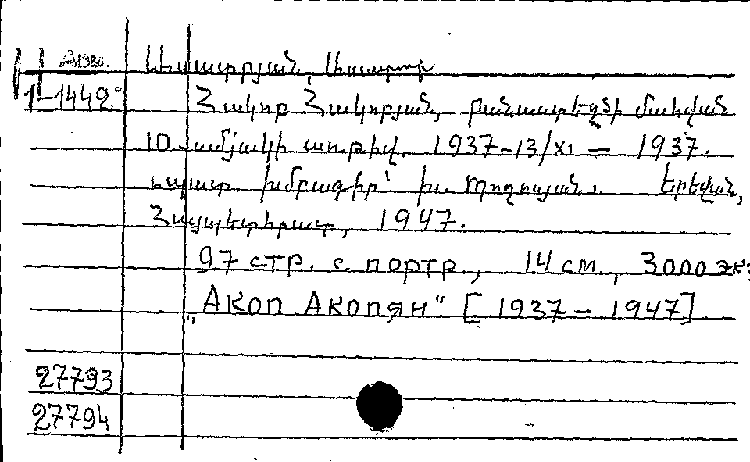 Հակոբ Հակոբյան, բանաստեղծի մահվան
1-1442
10-ամյակի առթիվ. 1937-13/XI — 1937.
պատ. խմբագիր՝ Երևան,
Հայպետհրատ, 1947.
97 стр. с портр., 14 см, 3000 экз
"Акоп Акопян" [1937 — 1947]
27793
27794